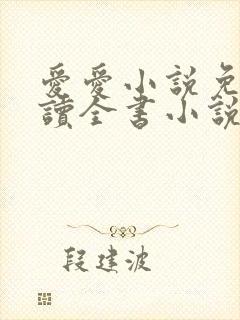 愛愛小説免
讀全書小說
段建波